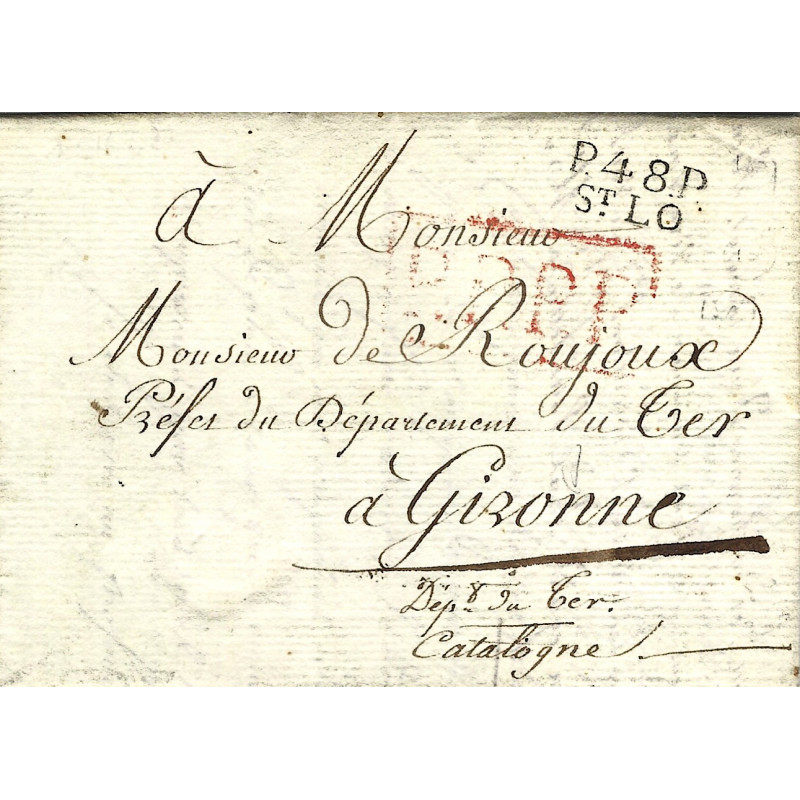 P.48.P.
ST LO
à Monsieur
P.P.P.P.
Monsieur de Roujoux
Préfet du Département du Ter
à Gironne
Dépt. du Ter.
Catalogne.